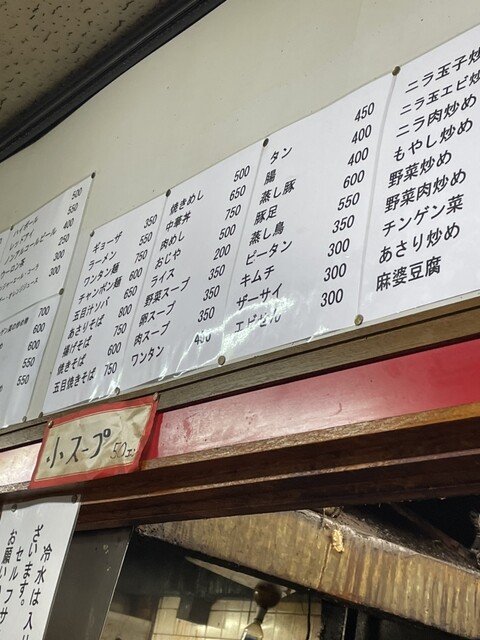 ハイボール 500
レッドアイ 550
ノンアルコールビール 400
ウーロン茶 250
300
オレンジジュース 300
700
600
550
550
ギョーザ 350
ラーメン 550
ワンタン麺
チャンポン麺 750
五目汁ソバ
あさりそば
揚げそば 750
焼きそば 600
五目焼きそば 750
焼きめし 500
中華丼 650
肉めし 750
おじや 500
ライス 200
野菜スープ 350
卵スープ 350
肉スープ 350
ワンタン
タン 450
腸 400
蒸し豚 400
豚足 600
蒸し鳥 550
ピータン 350
キムチ 300
ザーサイ 300
エビせん 300
ニラ玉子炒
ニラ玉エビ炒
ニラ肉炒め
もやし炒め
野菜炒め
野菜肉炒め
チンゲン菜
あさり炒め
麻婆豆腐
小スープ 50エン
冷水は入り
ざいます。
セルフサ
お願い